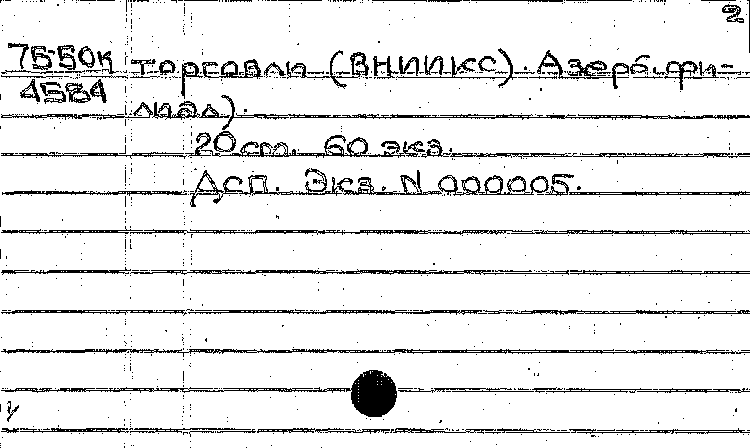 2
75-50к торговли (ВНИИКС). Азерб. фи-
4584 лиал).
20 ст. 60 экз.
Дсп. Экз. N 000005.